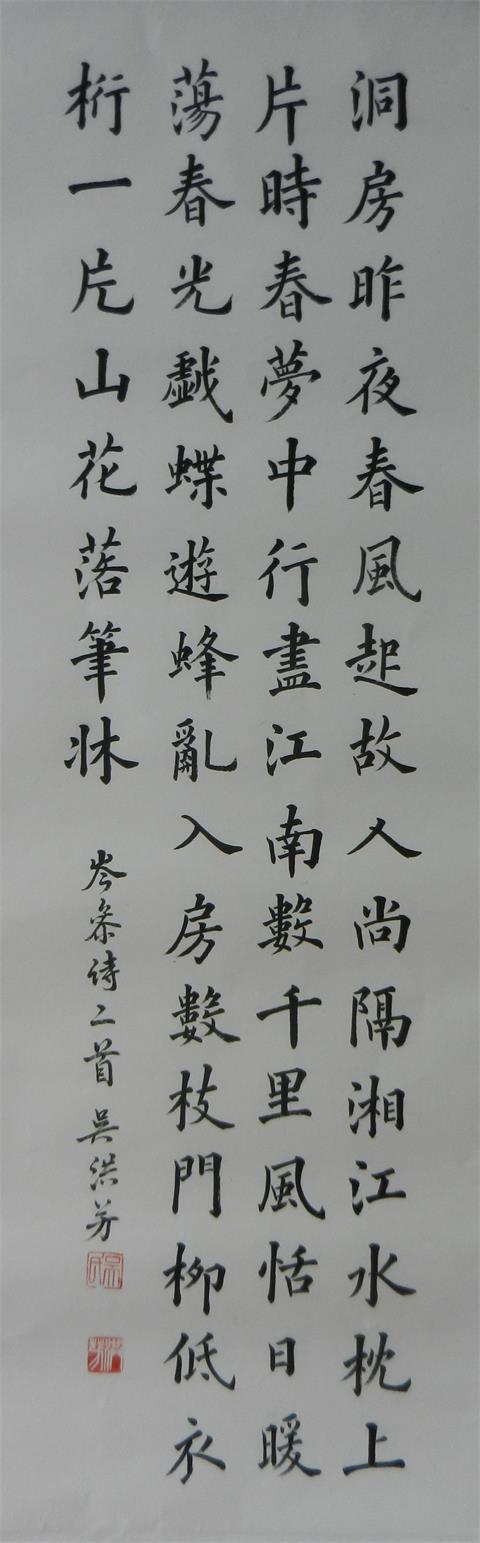 洞房昨夜春風起故人尚隔湘江水枕上
片時春夢中行盡江南數千里風恬日暖
蕩春光戲蝶遊蜂亂入房數枝門柳低衣
桁一片山花落筆牀
岑參詩二首 吳洪芳